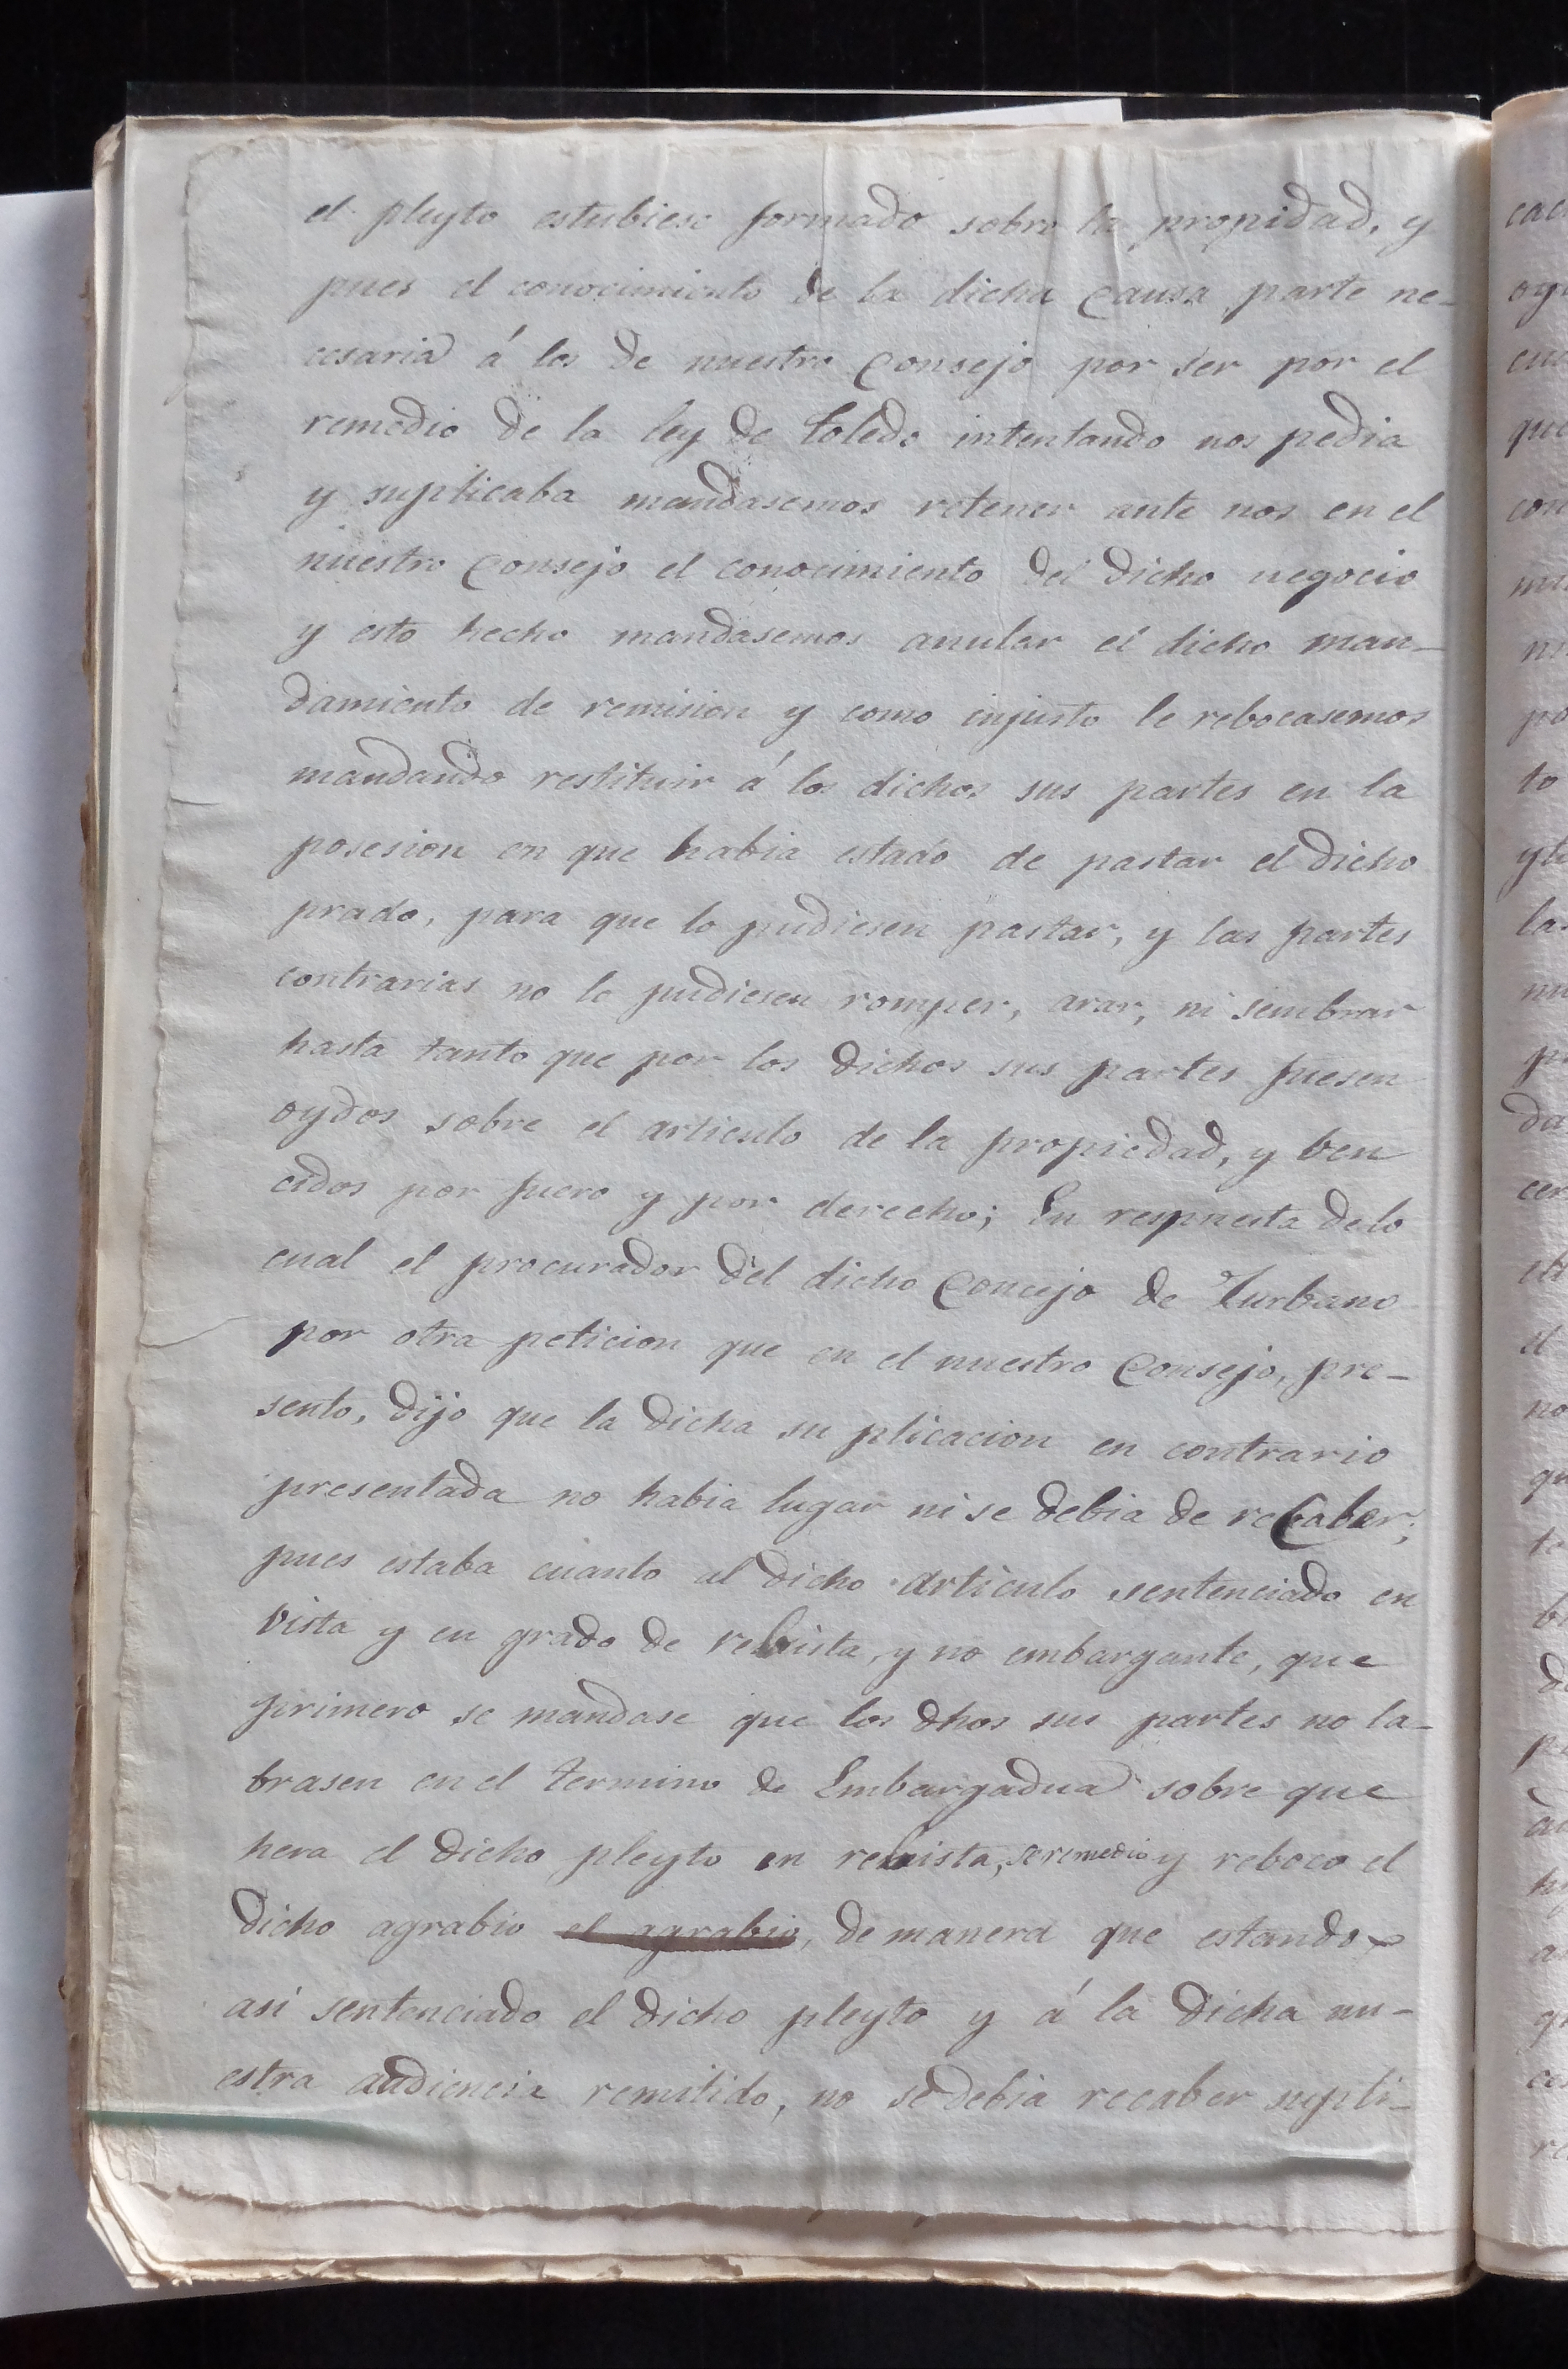 el pleyto estubiese formado sobre la propidad, y
pues el conocimiento de la dicha Causa parte ne-
cesaria á los de nuestro Consejo por ser por el
remedio de la ley de Toledo intentando nos pedia
y suplicaba mandasemos retener ante nos en el
nuestro Consejo el conocimiento del dicho negocio
y esto hecho mandasemos anular el dicho man-
damiento de remision y como injusto le rebocasemos
mandando restituir á los dichos sus partes en la
posesion en que habia estado de pastar el dicho
prado, para que lo pudiesen pastar, y las partes
contrarias no le pudiesen romper, arar, ni sembrar
hasta tanto que por los dichos sus partes fuesen
oydos sobre el articulo de la propiedad, y ben
cidos por fuero y por derecho; En respuesta de lo
cual el procurador del dicho Concejo de Zurbano
por otra peticion que en el nuestro Consejo, pre-
sento, dijo que la dicha su plicacion en contrario
presentada no habia lugar ni se debia de recaber;
pues estaba cuanto al dicho articulo sentenciado en
vista y en grado de rebista, y no embargante, que
primero se mandase que los dhos sus partes no la-
brasen en el termino de Embargadua sobre que
hera el dicho pleyto en rebista, se remedio y reboco el
dicho agrabio el agrabio, de manera que estando
asi sentenciado el dicho pleyto y á la dicha nu-
estra audiencia remitido, no se debia recaber supli-